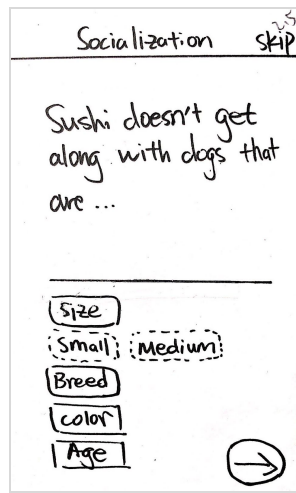 2.5
Socialization skip
Sushi doesn't get
along with dogs that
are ...
Size
Small Medium
Breed
color
Age